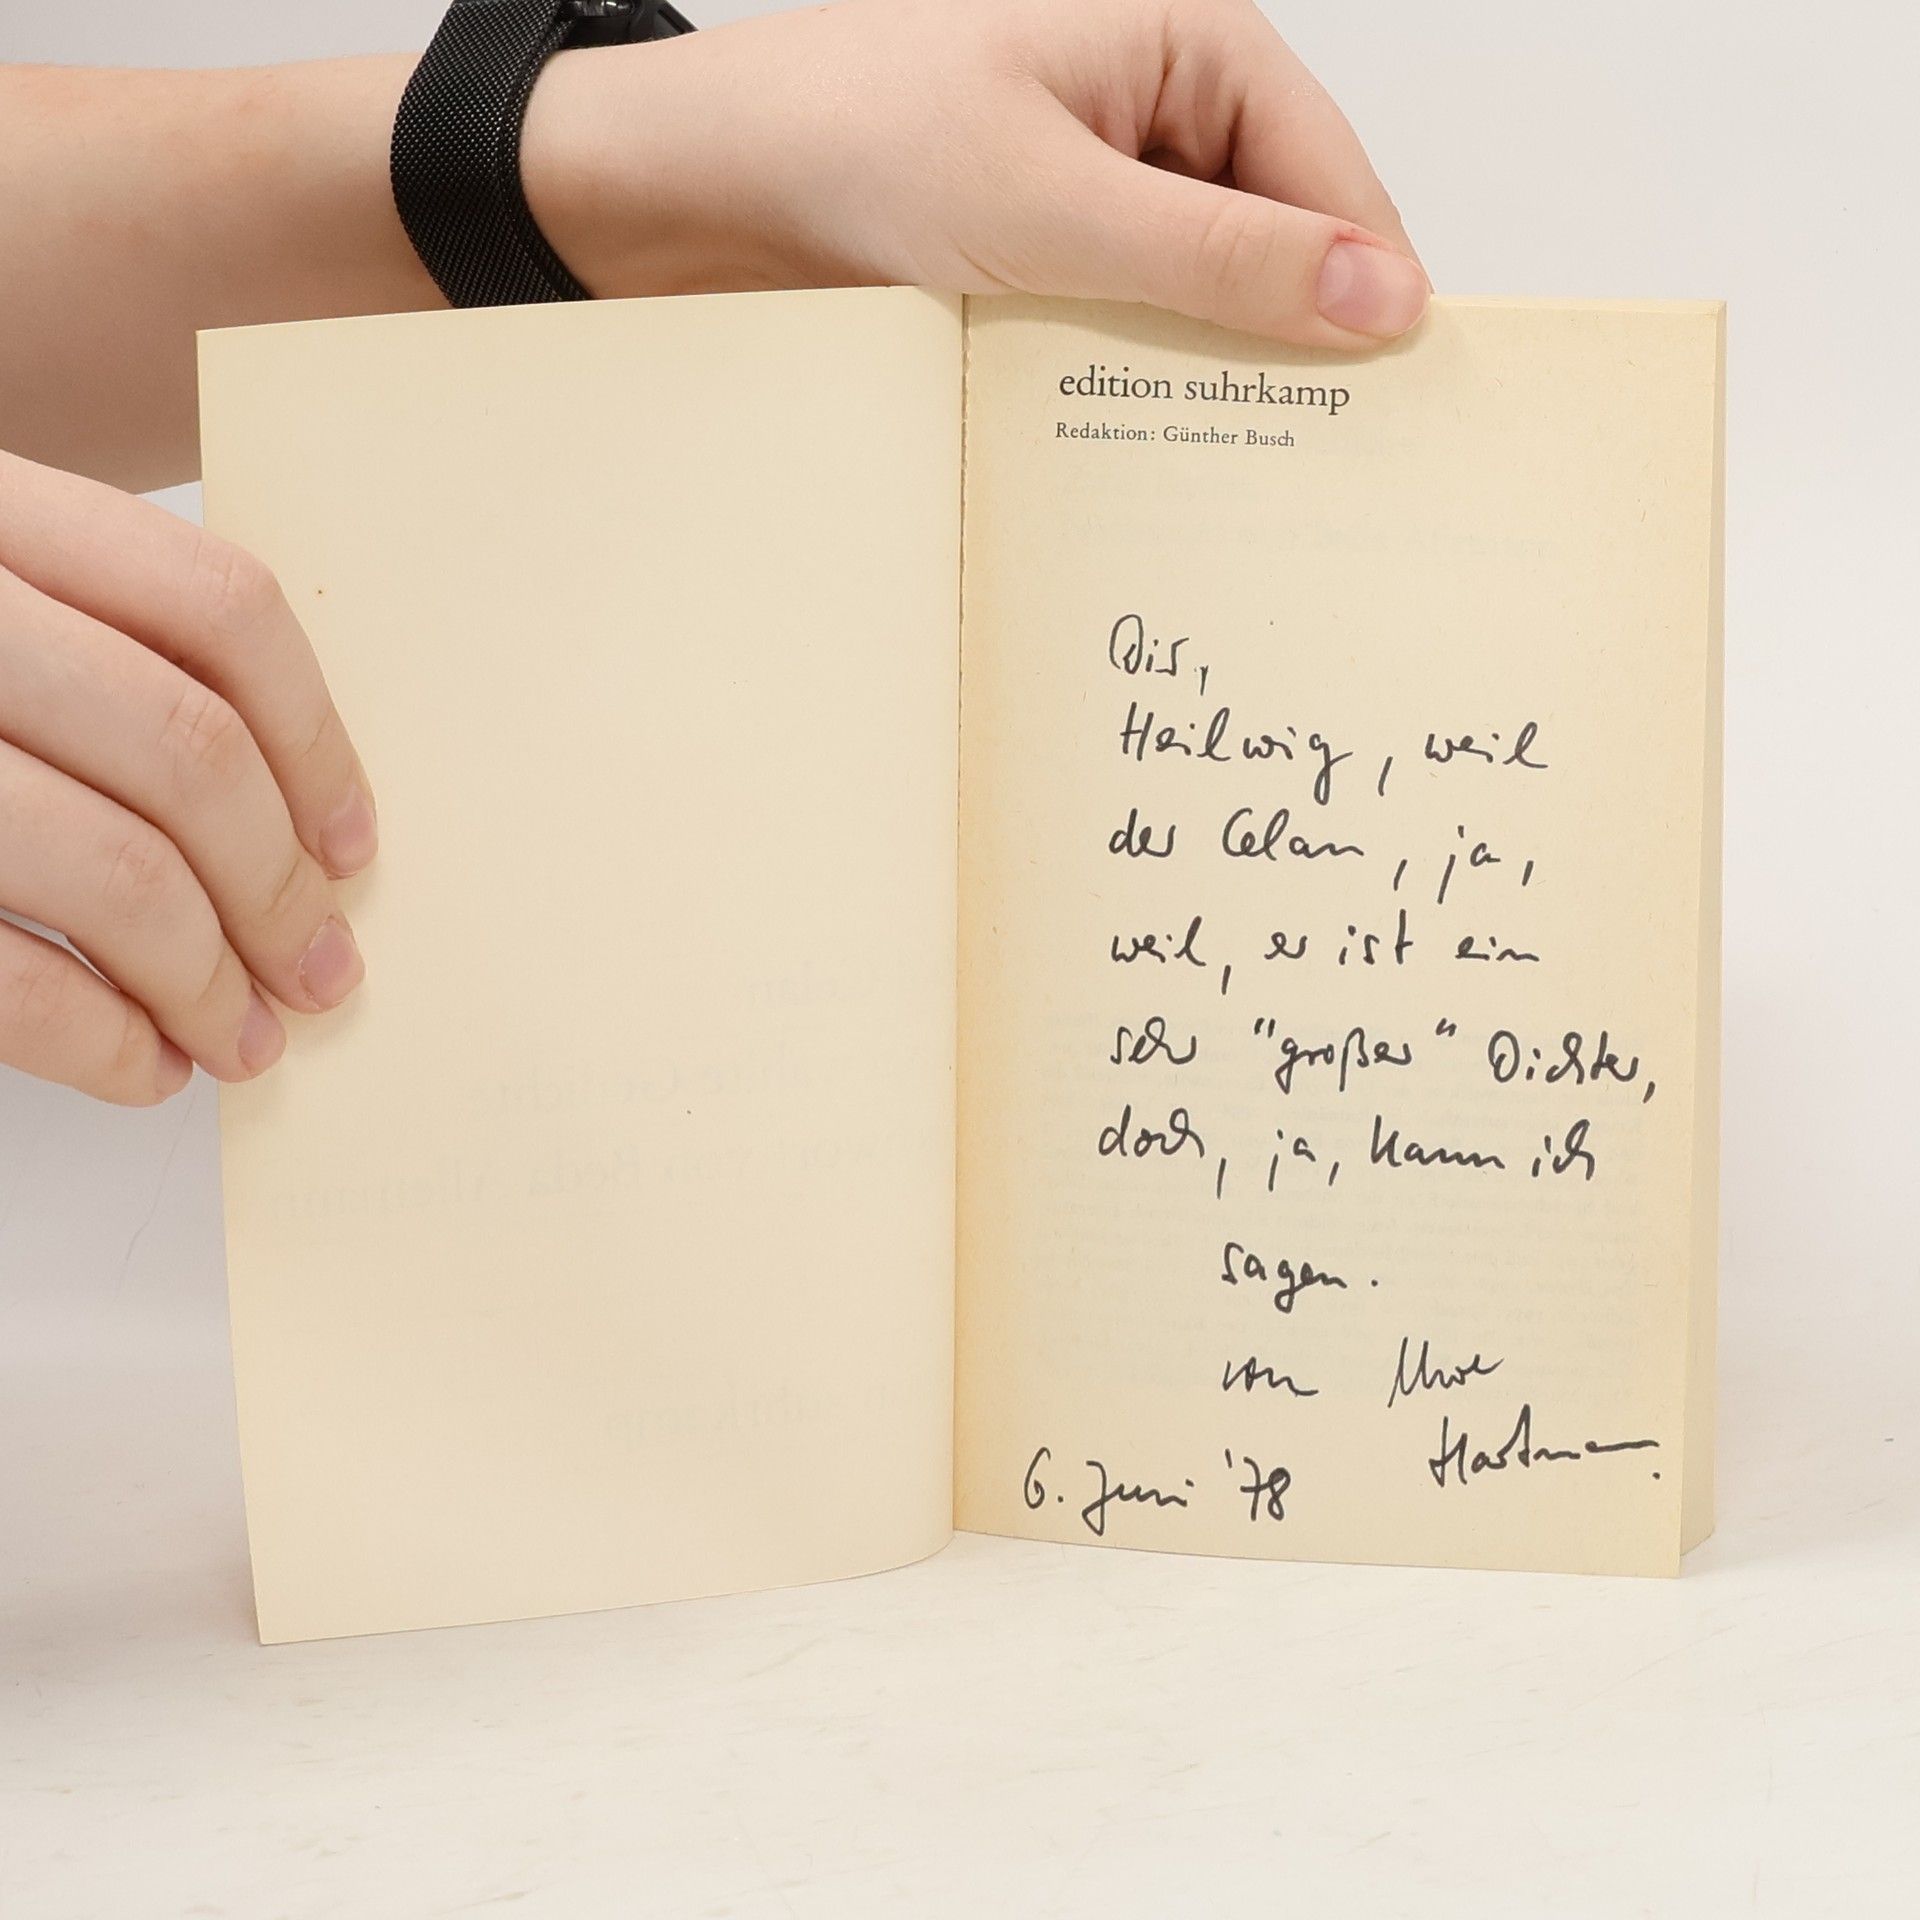 edition suhrkamp
Redaktion: Günther Busch
Dir,
Heilwig, weil
der Celan, ja,
weil, er ist ein
sehr "großer" Dichter,
doch, ja, kann ich
sagen.
von Uwe
Hartmann.
6. Juni '78